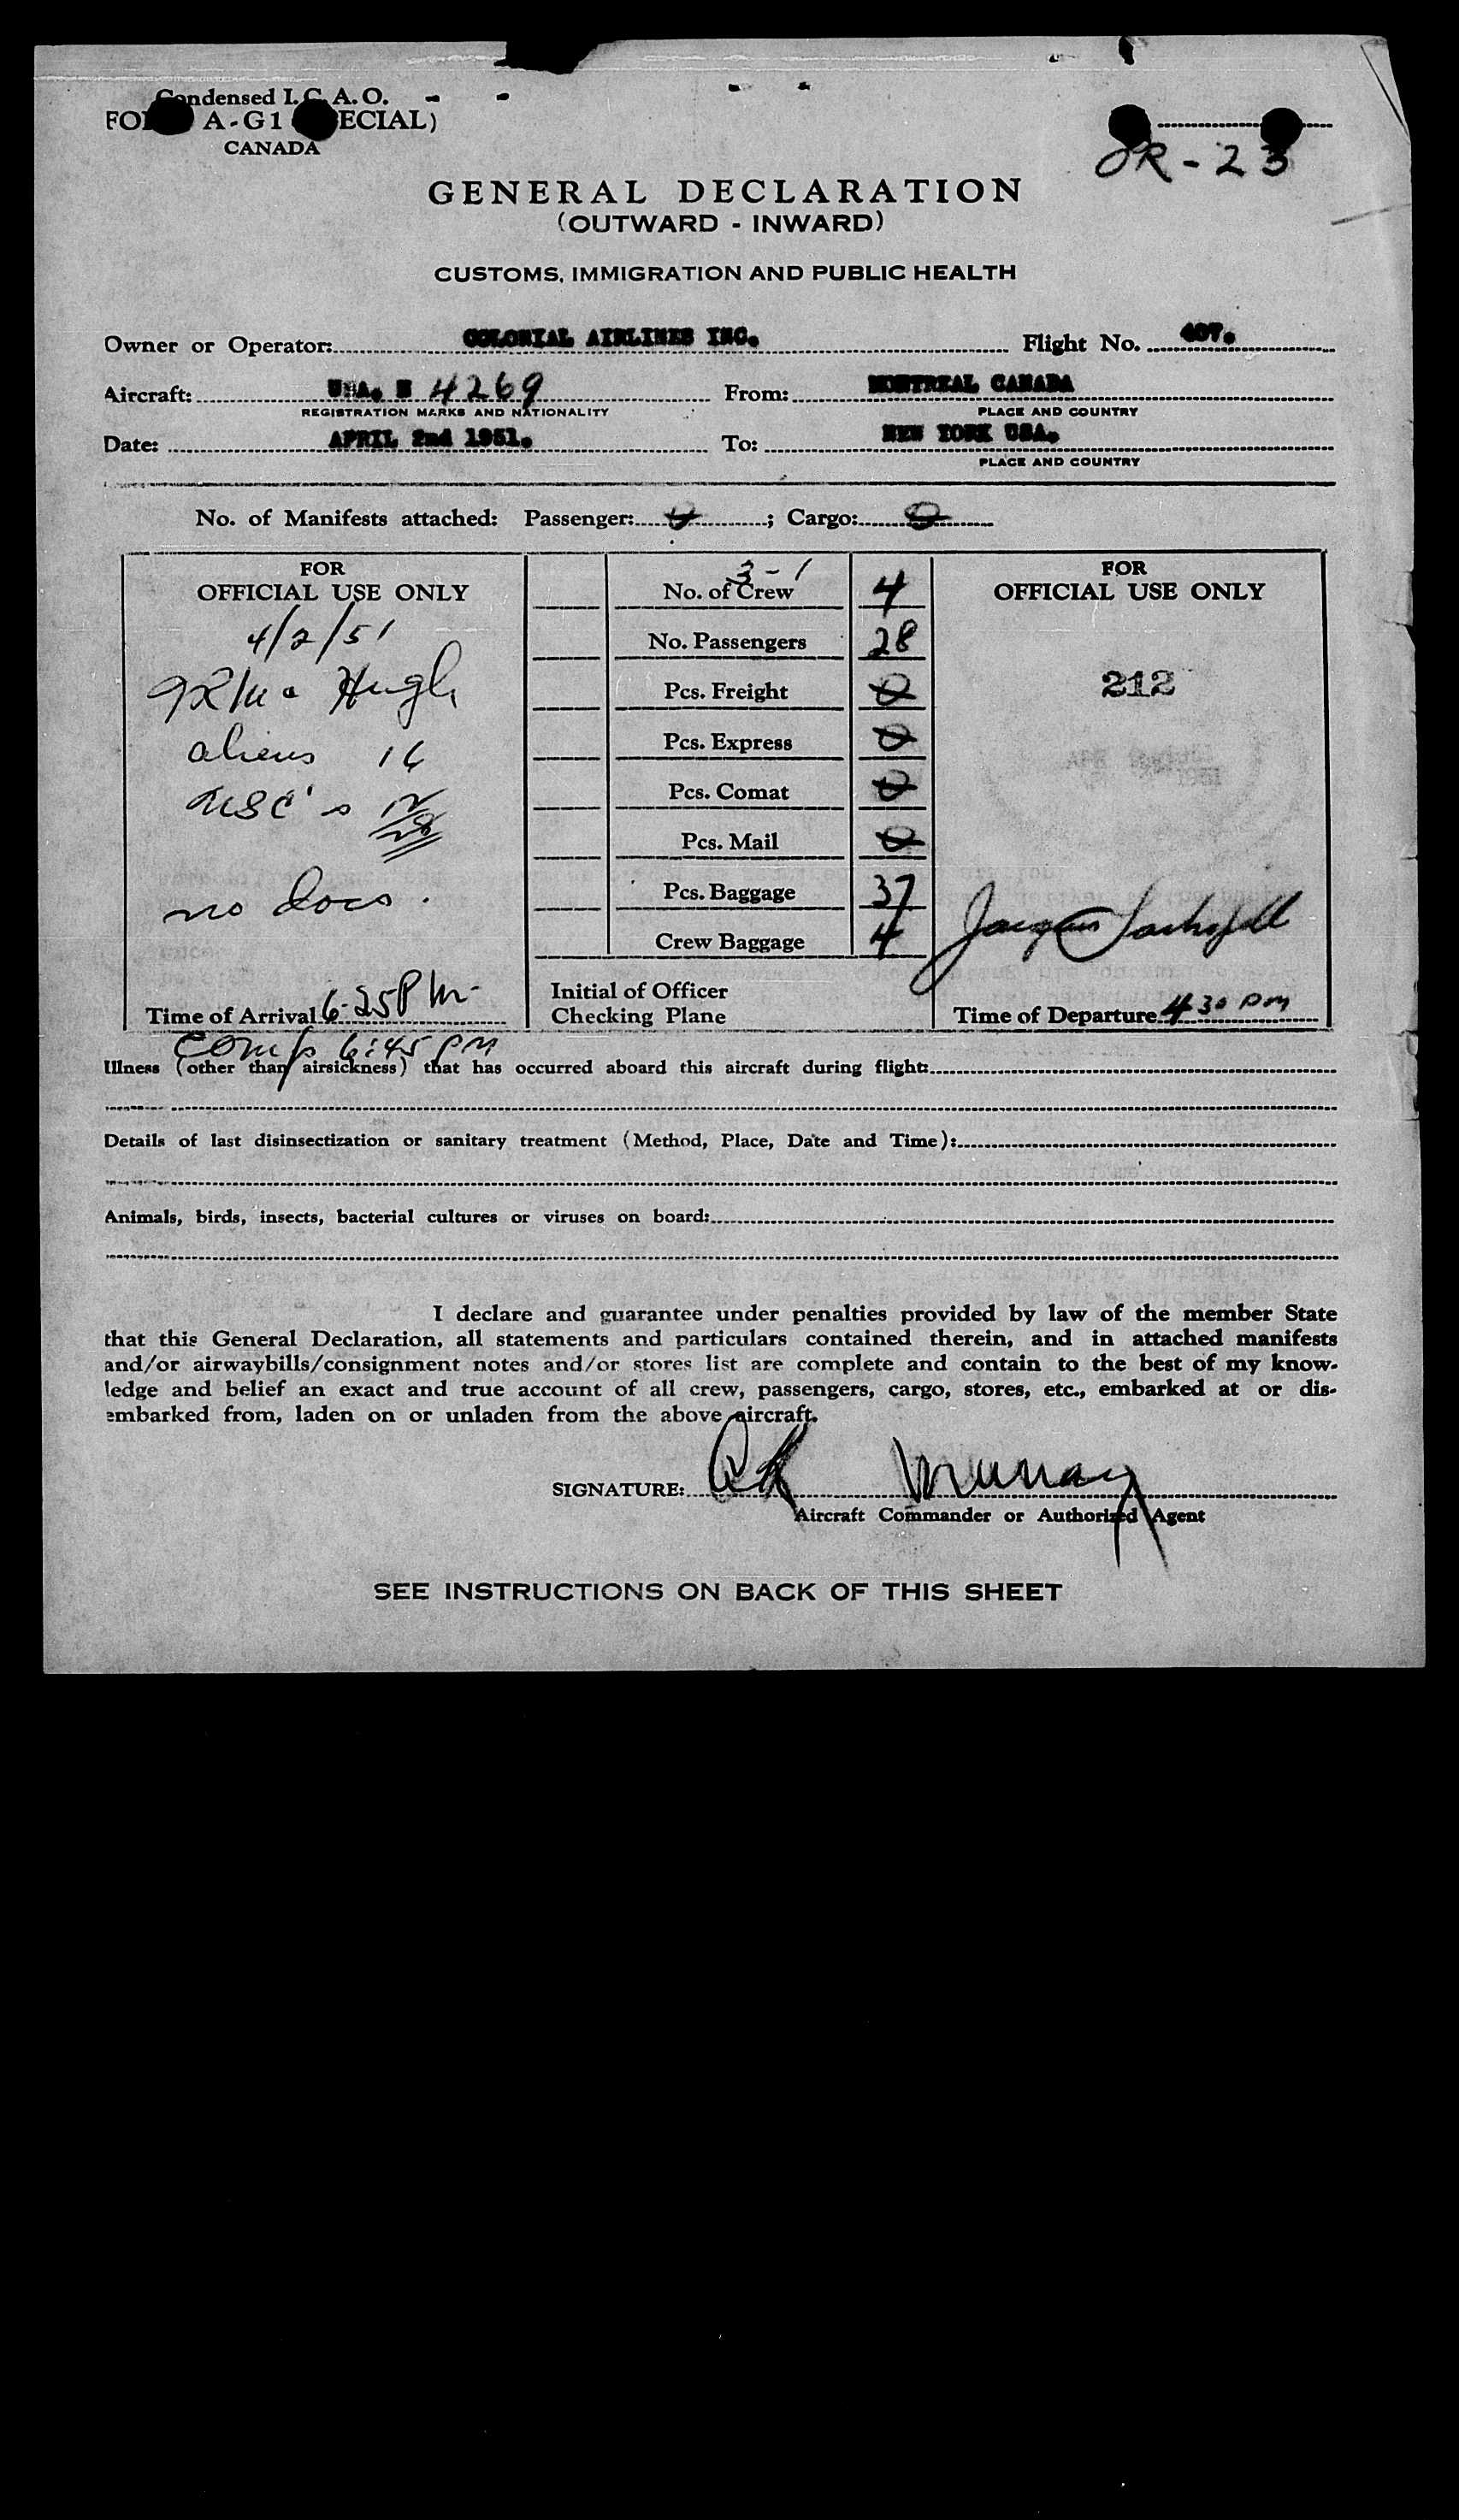 Condensed I.C.A.O.
A-G1 ECIAL)
CANADA
OR-23
GENERAL DECLARATION
(OUTWARD - INWARD)
CUSTOMS, IMMIGRATION AND PUBLIC HEALTH
Owner or Operator: COLONIAL AIRLINES INC. Flight No. 407.
Aircraft: USA. N 4269 From: MONTREAL CANADA
REGISTRATION MARKS AND NATIONALITY PLACE AND COUNTRY
Date: APRIL 2nd 1951. To: NEW YORK USA.
PLACE AND COUNTRY
No. of Manifests attached: Passenger: 0; Cargo: 0
FOR
OFFICIAL USE ONLY
4/2/51
Hugh
aliens 16
USC's 12
28
no docs.
Time of Arrival 6-25 PM-
Comp 6:45 PM
3-1
No. of Crew 4
No. Passengers 28
Pcs. Freight 0
Pcs. Express 0
Pcs. Comat 0
Pcs. Mail 0
Pcs. Baggage 37
Crew Baggage 4
Initial of Officer
Checking Plane
FOR
OFFICIAL USE ONLY
212
Time of Departure 4 30 PM
Illness (other than airsickness) that has occurred aboard this aircraft during flight:
Details of last disinsectization or sanitary treatment (Method, Place, Date and Time):
Animals, birds, insects, bacterial cultures or viruses on board:
I declare and guarantee under penalties provided by law of the member State
that this General Declaration, all statements and particulars contained therein, and in attached manifests
and/or airwaybills/consignment notes and/or stores list are complete and contain to the best of my know-
ledge and belief an exact and true account of all crew, passengers, cargo, stores, etc., embarked at or dis-
embarked from, laden on or unladen from the above aircraft.
SIGNATURE: Murray
Aircraft Commander or Authorized Agent
SEE INSTRUCTIONS ON BACK OF THIS SHEET